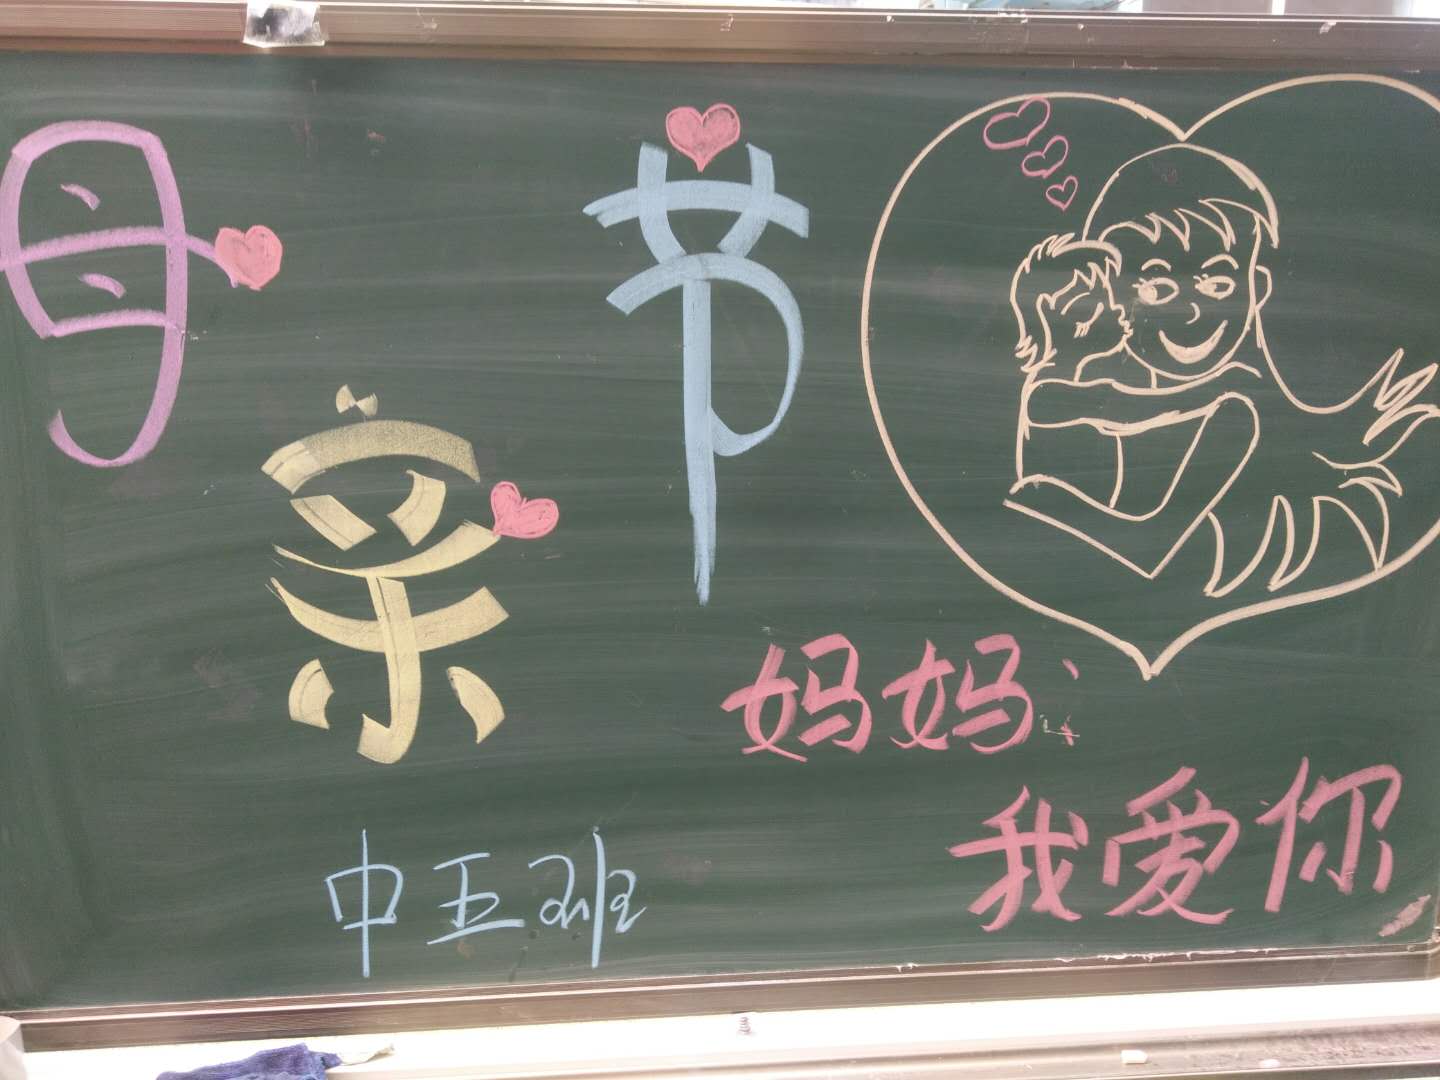 母亲节
妈妈:
我爱你
中五班